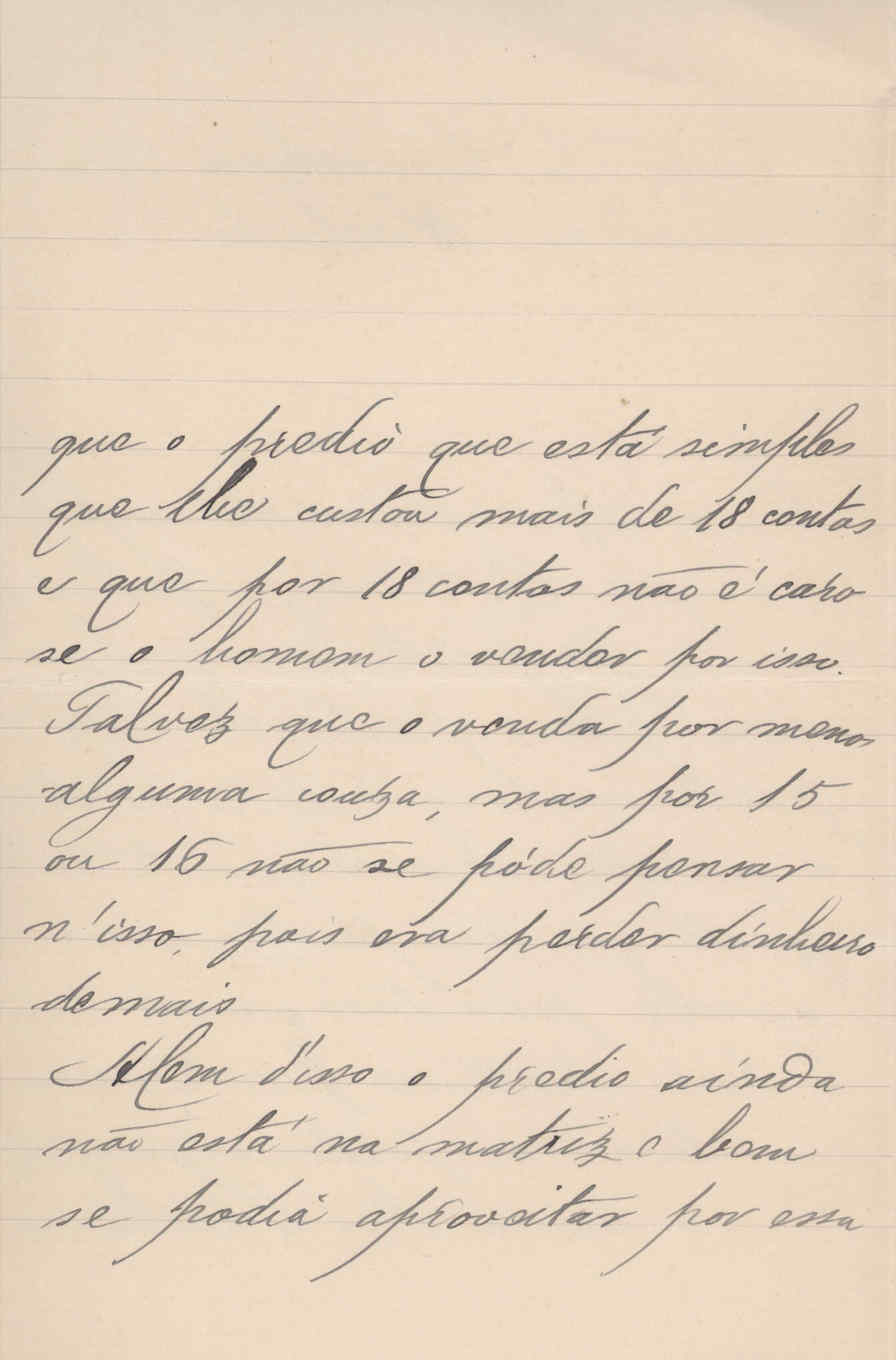 que o predio que está simples
que lhe custou mais de 18 contos
e que por 18 contos não é caro
se o homem o vender por isso.
Talvez que o venda por menos
alguma couza, mas por 15
ou 16 não se póde pensar
n'isso, pois era perder dinheiro
demais
Alem d'isso o predio ainda
não está na matriz e bem
se podia aproveitar por essa